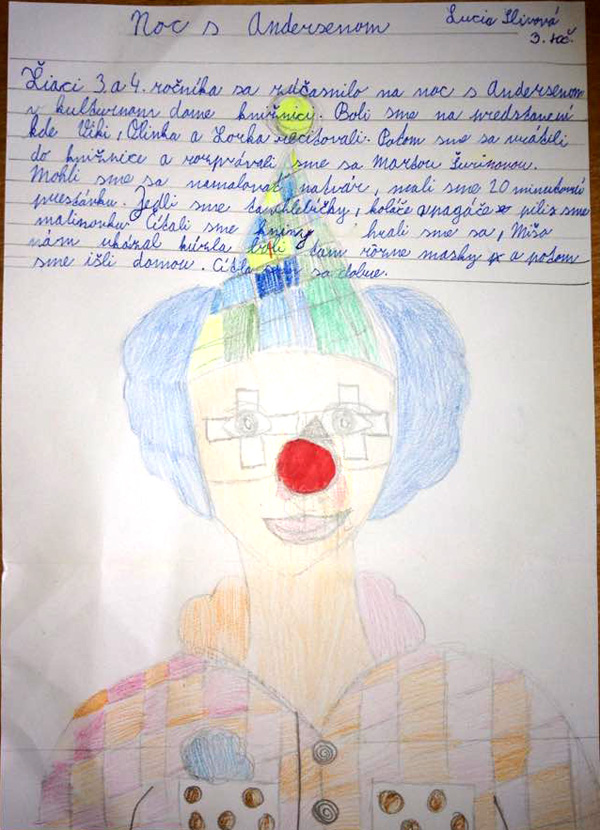 Noc s Andersenom
Lucia Slivová
3. roč.
Žiaci 3 a 4. ročníka sa zúčasnilo na noc s Andersenom
v kulturnom dome knižnici. Boli sme na predstavení
kde Viki, Olinka a Lorka recitovali. Potom sme sa vrátili
do knižnice a rozprávali sme sa Martou Šurinovou.
Mohli sme sa namalovať na tvár, mali sme 20 minutovú
prestávku. Jedli sme koláče pagáče pili sme
malinovku. Čítali sme knihy hrali sme sa, Mišo
nám ukázal kúzla boli tam rôzne masky a potom
sme išli domov. sa dobre.